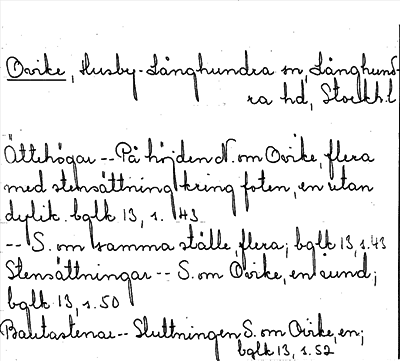 Ovike, Husby-Långhundra sn, Långhund-
ra hd, Stockh.l
Ättehögar -- På höjden N. om Ovike, flera
med stensättning kring foten, en utan
dylik. bglk 13, s. 43
-- S. om samma ställe, flera; bglk 13, s. 43
Stensättningar -- S. om Ovike, en rund;
bglk 13, s. 50
Bautastenar -- Sluttningen S. om Ovike, en;
bglk 13, s. 52